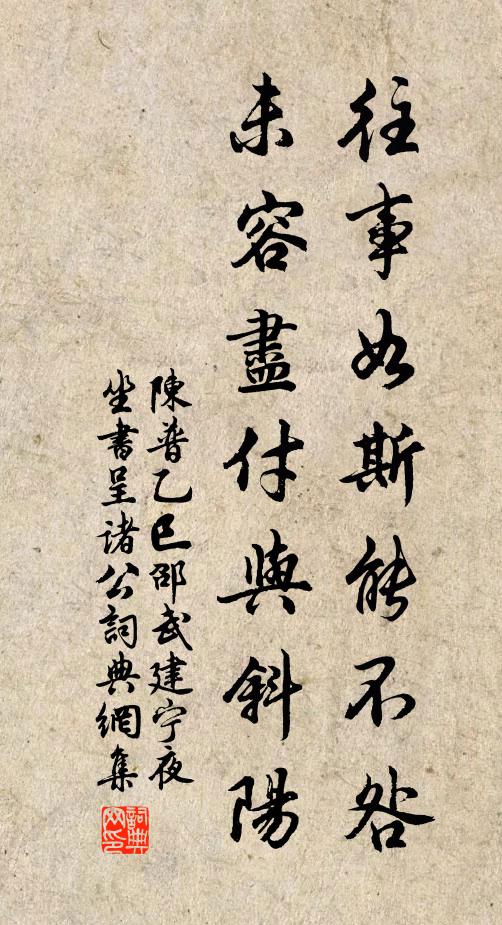 往事如斯能不咎
未容盡付與斜陽
陳普乙巳邵武建宁夜
坐書呈諸公詞典網集
詞典网印